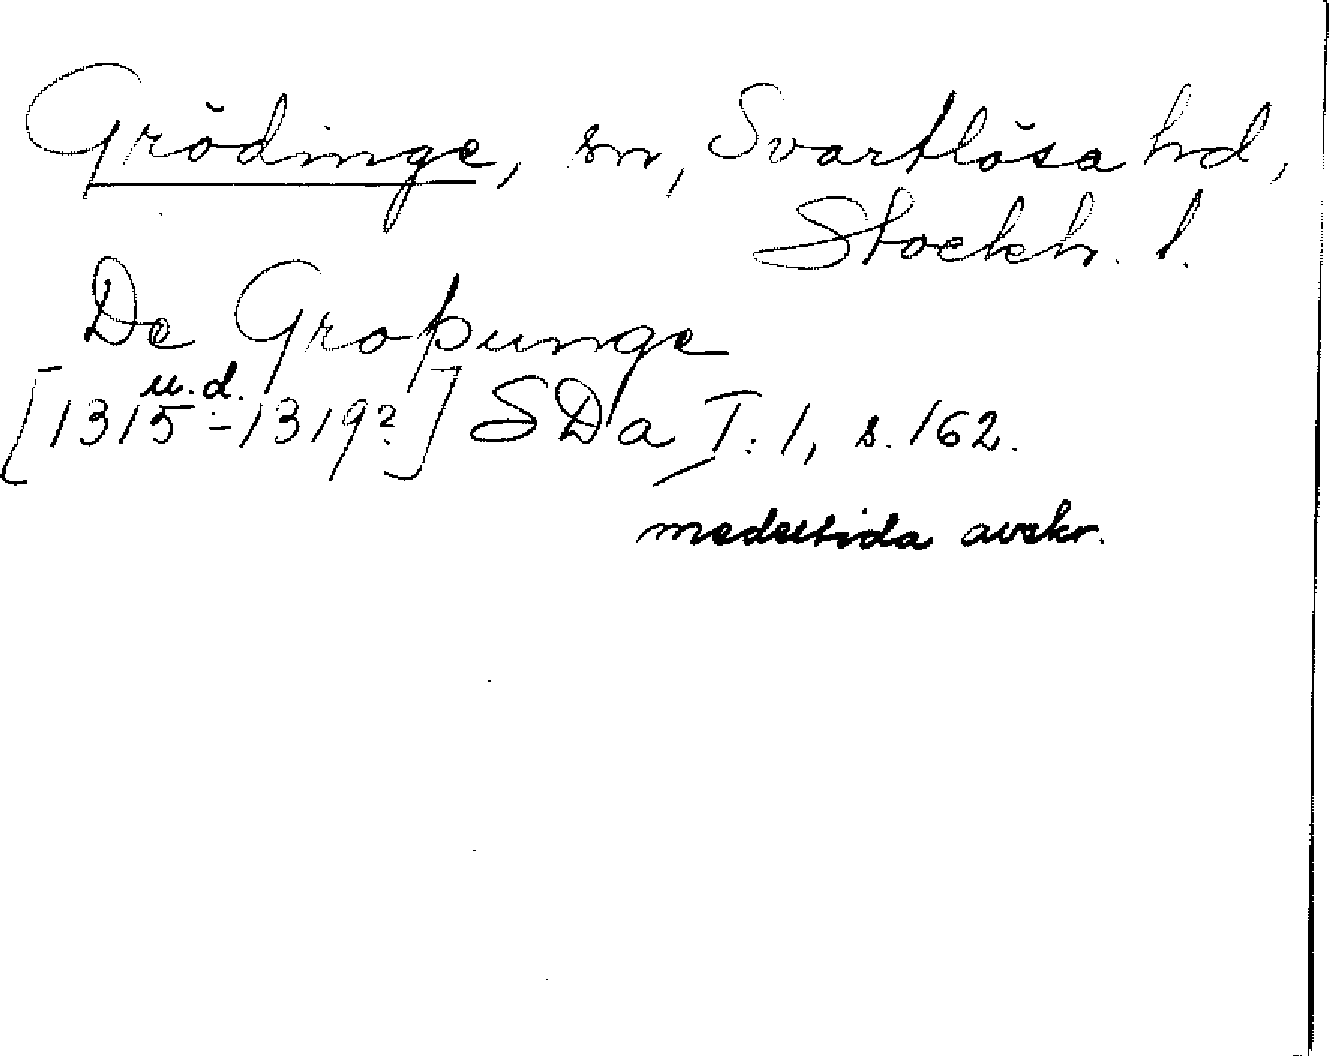 Grödinge, sn, Svartlösa hd,
Stockh. l.
De Groþunge
u.d.
[1315-1319?] SDa I:1, s. 162.
medeltida avskr.